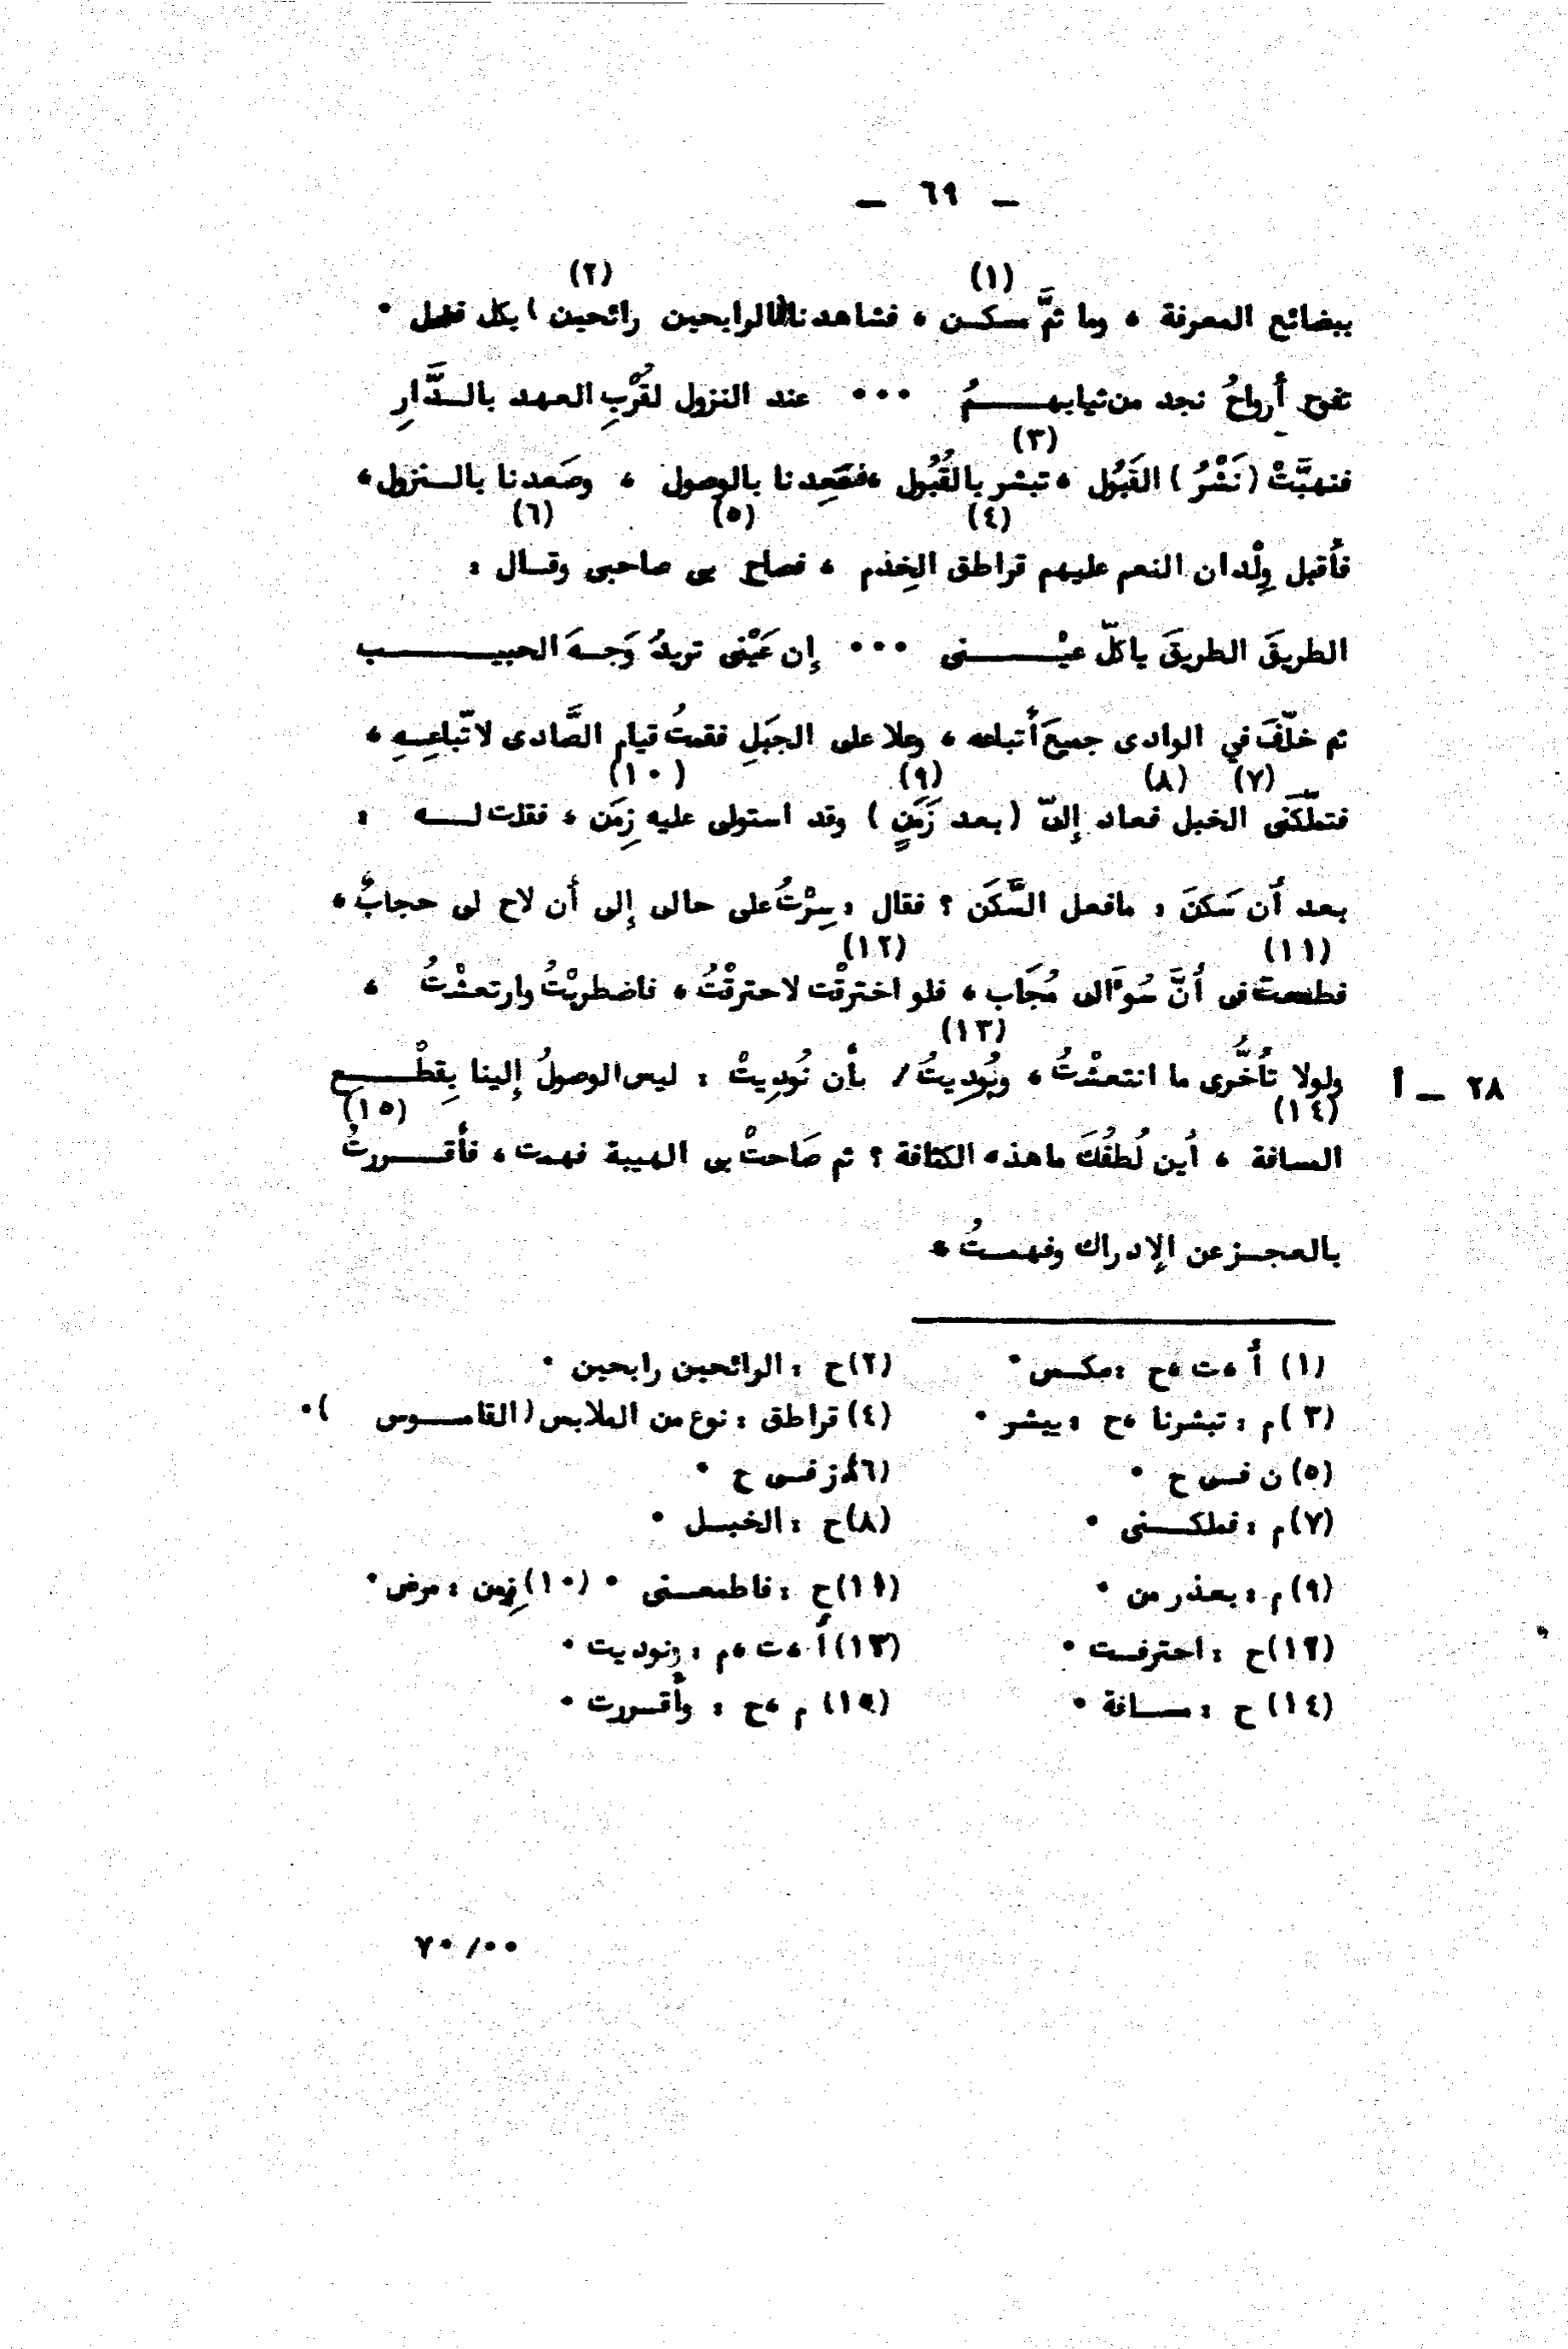 — ٦٩ —
(١) (٢)
ببضائع المعرفة ، وما ثَمَّ مسكـن ، فشاهدنا (الرابحين رائحين) بكل فضل ٠
تفوح أَرواحُ نجد من ثيابهـــمُ ٠٠٠ عند النزول لقُرْبِ العهد بالـدَّارِ
(٣)
فتهبَّتْ (نَشْرُ) القَبُول ، تبشر بالقُبُول ، فسَعِدنا بالوصول ، وصَعدنا بالــنزول ،
(٤) (٥) (٦)
فأَقبل وِلْدان النعم عليهم قراطق الخِذم ، فصاح بى صاحبى وقــال :
الطريقَ الطريقَ ياكلّ عيْـــنى ٠٠٠ إِن عَيْنى تريدُ وَجـهَ الحبيـــــب
ثم خلّفَ في الوادى جميعَ أَتباعه ، وعلا على الجبَلِ فقمتُ قيام الصَّادى لاتّباعِـهِ ،
(٧) (٨) (٩) (١٠)
فتملّكَنى الخبل فعاد إِلىّ (بعد زَمَنٍ) وقد استولى عليه زِمَن ، فقلت لـــه :
بعد أَن سَكنَ : مافعل السَّكَن ؟ فقال : سِرْتُ على حالى إِلى أَن لاح لى حجابٌ ،
(١١) (١٢)
فطمعت فى أَنَّ سُؤَالى مُجَاب ، فلو اخترقْت لاحترقْتُ ، فاضطربْتُ وارتعشْتُ ،
(١٣)
٢٨ — أ ولولا تأَخُّرى ما انتعشْتُ ، ونُودِيتُ / بأَن نُودِيتْ : ليس الوصولُ إِلينا بِقطْــع
(١٤) (١٥)
المسافة ، أَين لُطفُكَ ماهذه الكثافة ؟ ثم صَاحتْ بى الهيبة فهمت ، فأَقــررتُ
بالعجــز عن الإِدراك وفهمــتُ ،
(١) أَ ،ت ،ح :مكــس ٠ (٢) ح : الرائحين رابحين ٠
(٣) م : تبشرنا ،ح : يبشر ٠ (٤) قراطق : نوع من الملابس (القامـــوس) ٠
(٥) ن فــى ح ٠ (٦) ز فــى ح ٠
(٧) م : فملكـــنى ٠ (٨) ح : الخيــل ٠
(٩) م : بعذر من ٠ (١١) ح : فاطمعــنى ٠ (١٠) زِمن : مرض ٠
(١٢) ح : احترفــت ٠ (١٣) أَ ،ت ،م : ونوديت ٠
(١٤) ح : مســافة ٠ (١٥) م ،ح : وأَقــررت ٠
٧٠/٠٠